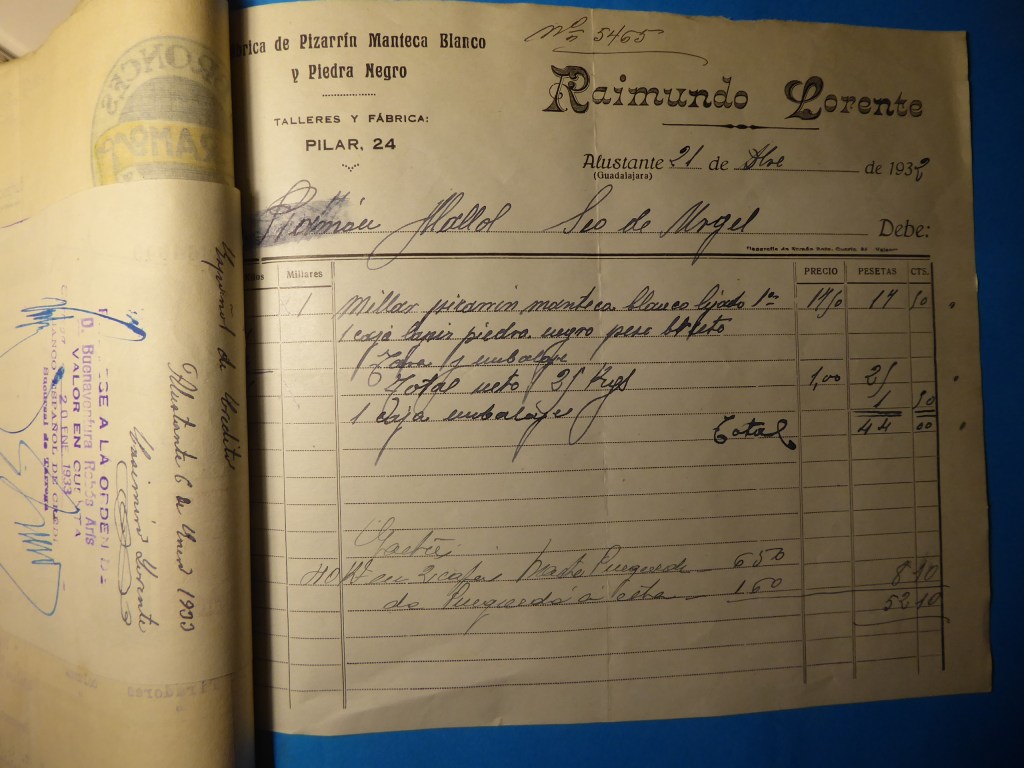 Nº 5465
Fábrica de Pizarrín Manteca Blanco
y Piedra Negro
TALLERES Y FÁBRICA:
PILAR, 24
Raimundo Lorente
Alustante 21 de Dbre de 1932
(Guadalajara)
Román Mallol Seo de Urgel Debe:
Millares PRECIO PESETAS CTS.
1 Millar pizarrin manteca blanco lijado 1ª 17,50 17 50
1 caja lapiz piedra negro peso bruto
Tara y embalaje
Total neto 25 Kgs 1,00 25
1 caja embalaje 1 50
Total 44 00
Gastos
40 K en 2 cajas hasta Puigcerdá 650
de Puigcerdá a esta 160 8 10
52 10
BRONCES
Español de Credito
Alustante 6 de Enero 1933
Lorente
PAGUESE A LA ORDEN DE
D. Buenaventura Arís
VALOR EN CUENTA
20 ENE. 1933
BANCO ESPAÑOL DE CREDITO
Sucursal de